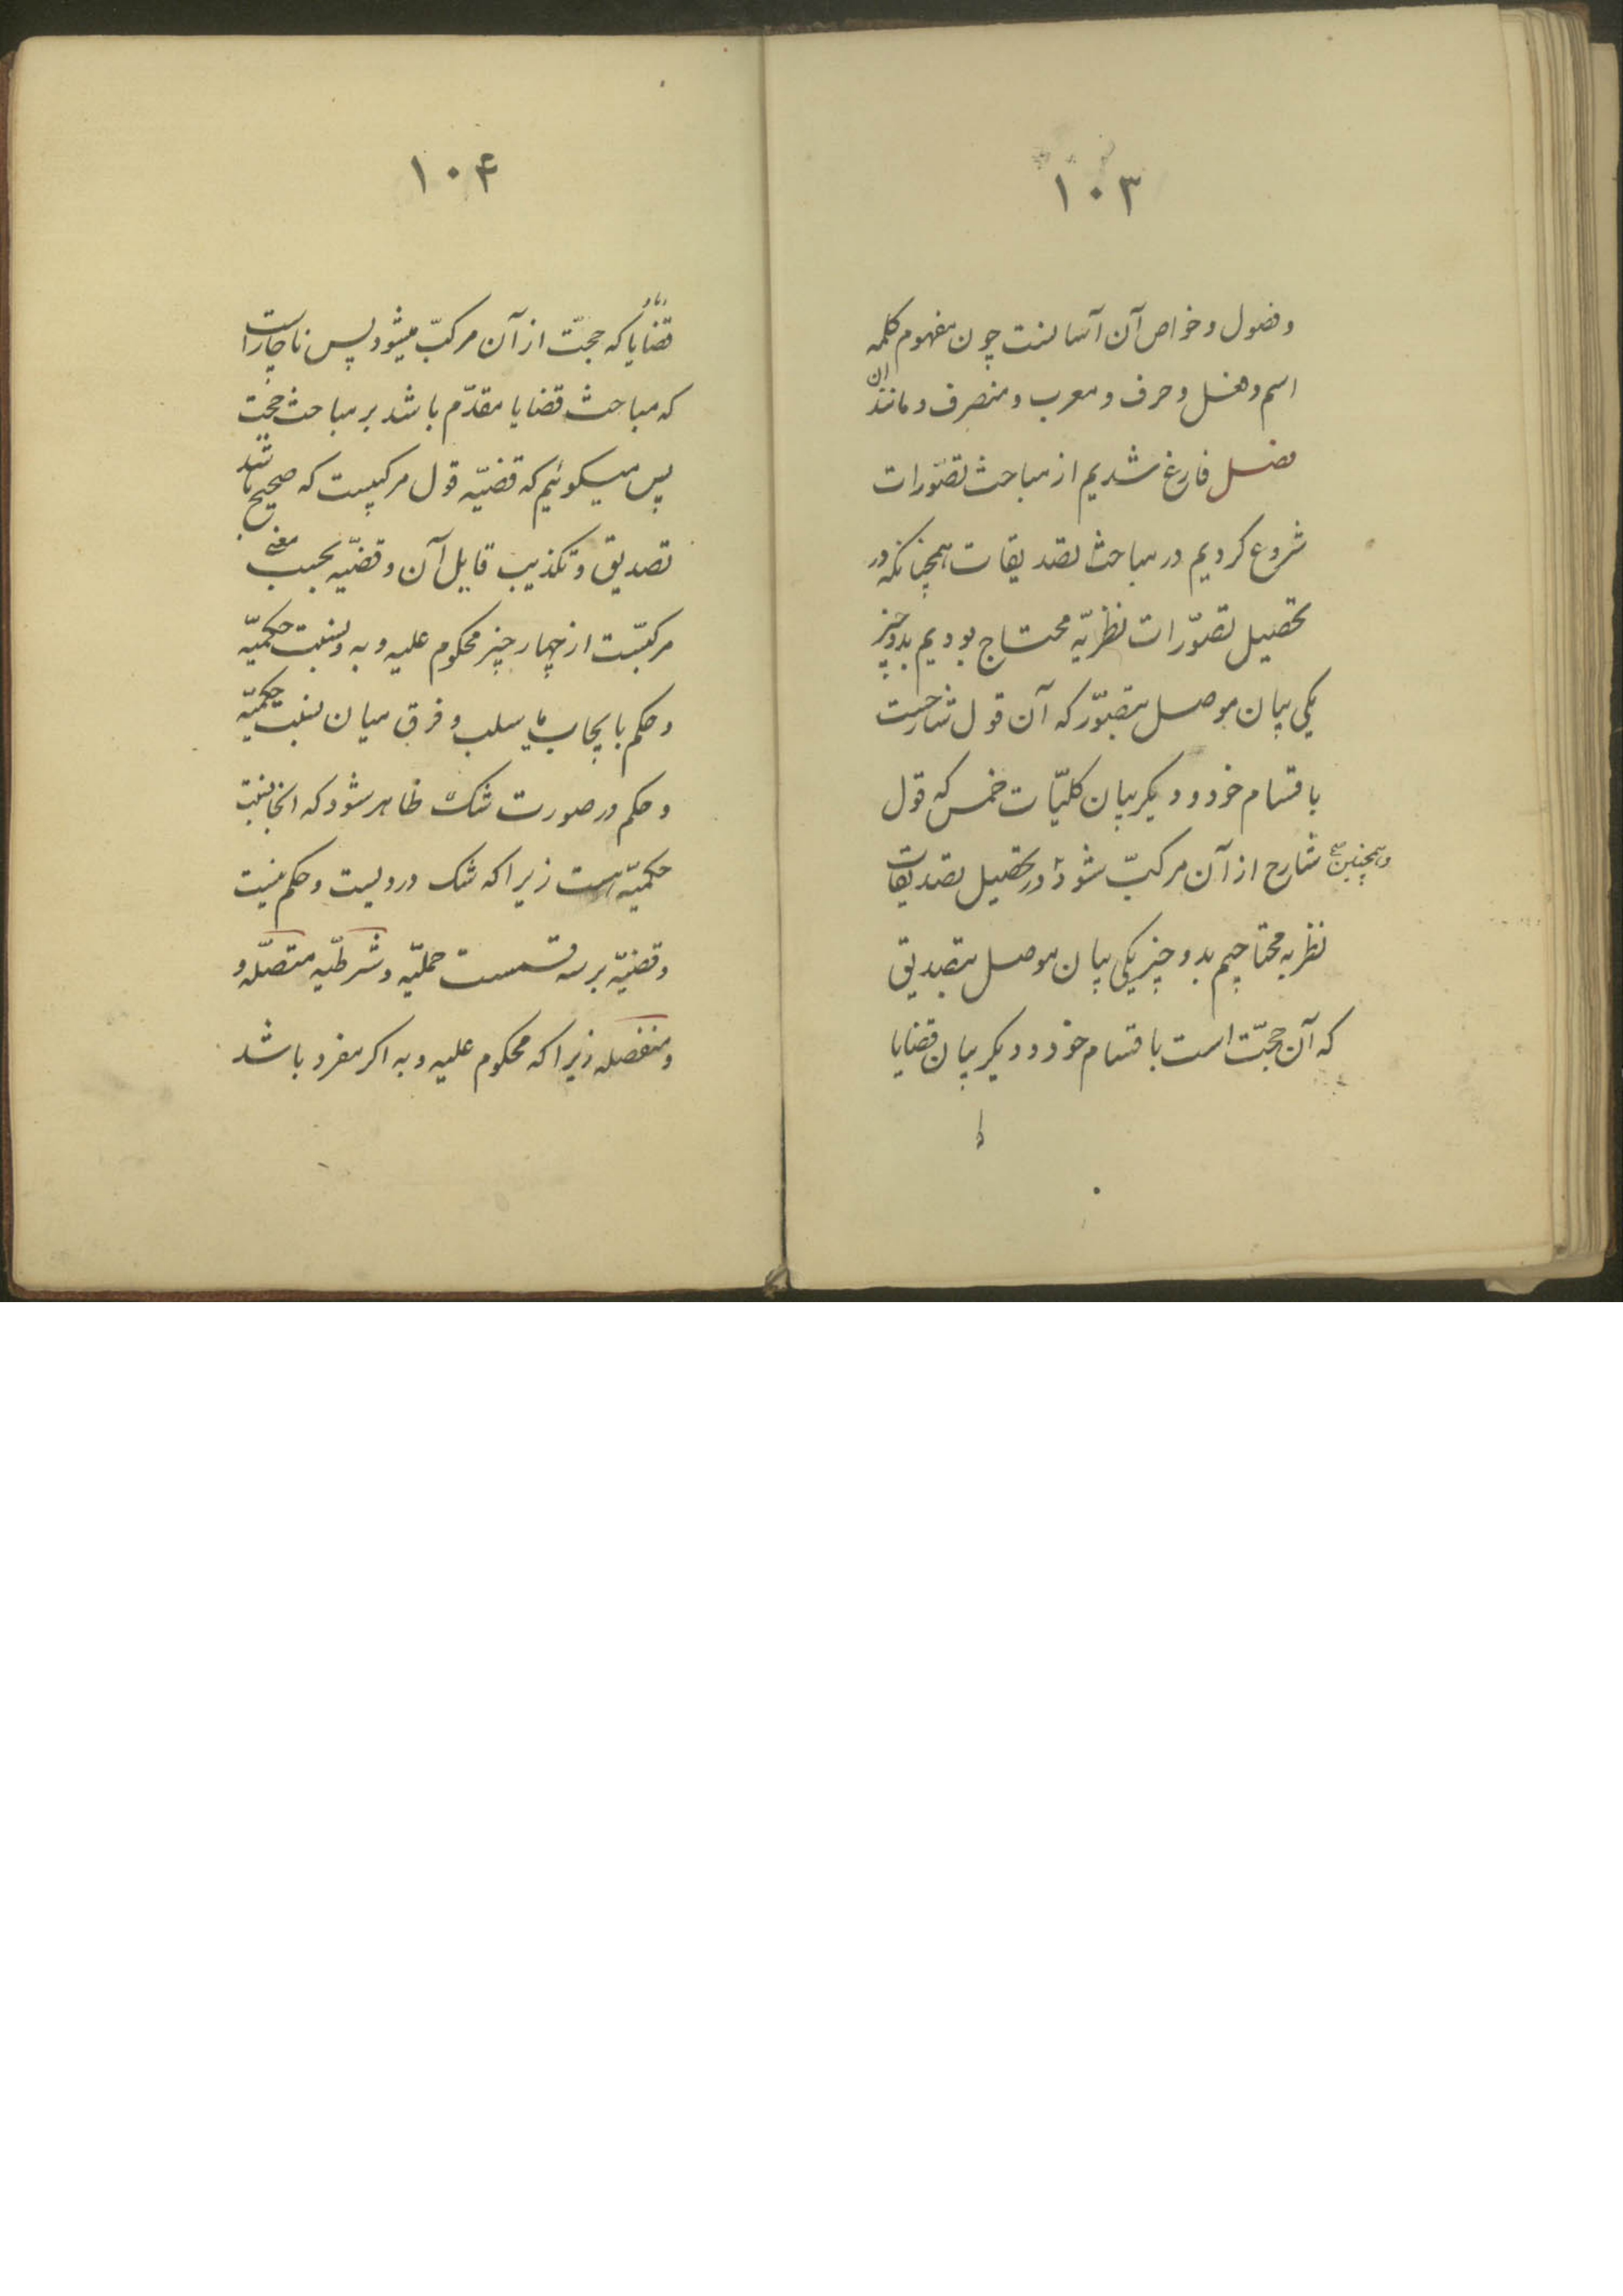 ۱۰۳
وفصول وخواص آن آسانست چون مفهوم کلمه
اسم وفعل وحرف ومعرب ومنصرف ومانند ان
فصل فارغ شدیم از مباحث تصوّرات
شروع کردیم در مباحث تصدیقات همچنانکه در
تحصیل تصوّرات نظریّه محتاج بودیم بدو چیز
یکی بیان موصل بتصوّر که آن قول شارحست
باقسام خود و دیکر بیان کلیّات خمس که قول
شارح از آن مرکبّ شود در تحصیل تصدیقات
وهمچنین
نظریه محتاجیم بدو چیز یکی بیان موصل بتصدیق
که آن حجّت است باقسام خود و دیکر بیان قضایا
۱۰۴
قضایا که حجتّ از آن مرکبّ میشود پس ناچار است
که مباحث قضایا مقدّم باشد بر مباحث حجّت
پس میکوئیم که قضیّه قول مرکبیست که صحیح باشد
تصدیق وتکذیب قایل آن وقضیّه بحسب معنی
مرکبّست از چهار چیز محکوم علیه وبه ونسبت حکمیّه
وحکم بایجاب یا سلب وفرق میان نسبت حکمیّه
وحکم در صورت شک ظاهر شود که انجا نسبت
حکمیّه هست زیرا که شک درویست وحکم نیست
وقضیّه بر سه قسمست حملیّه وشرطیّه متصّله و
ومنفصله زیرا که محکوم علیه وبه اکر مفرد باشد